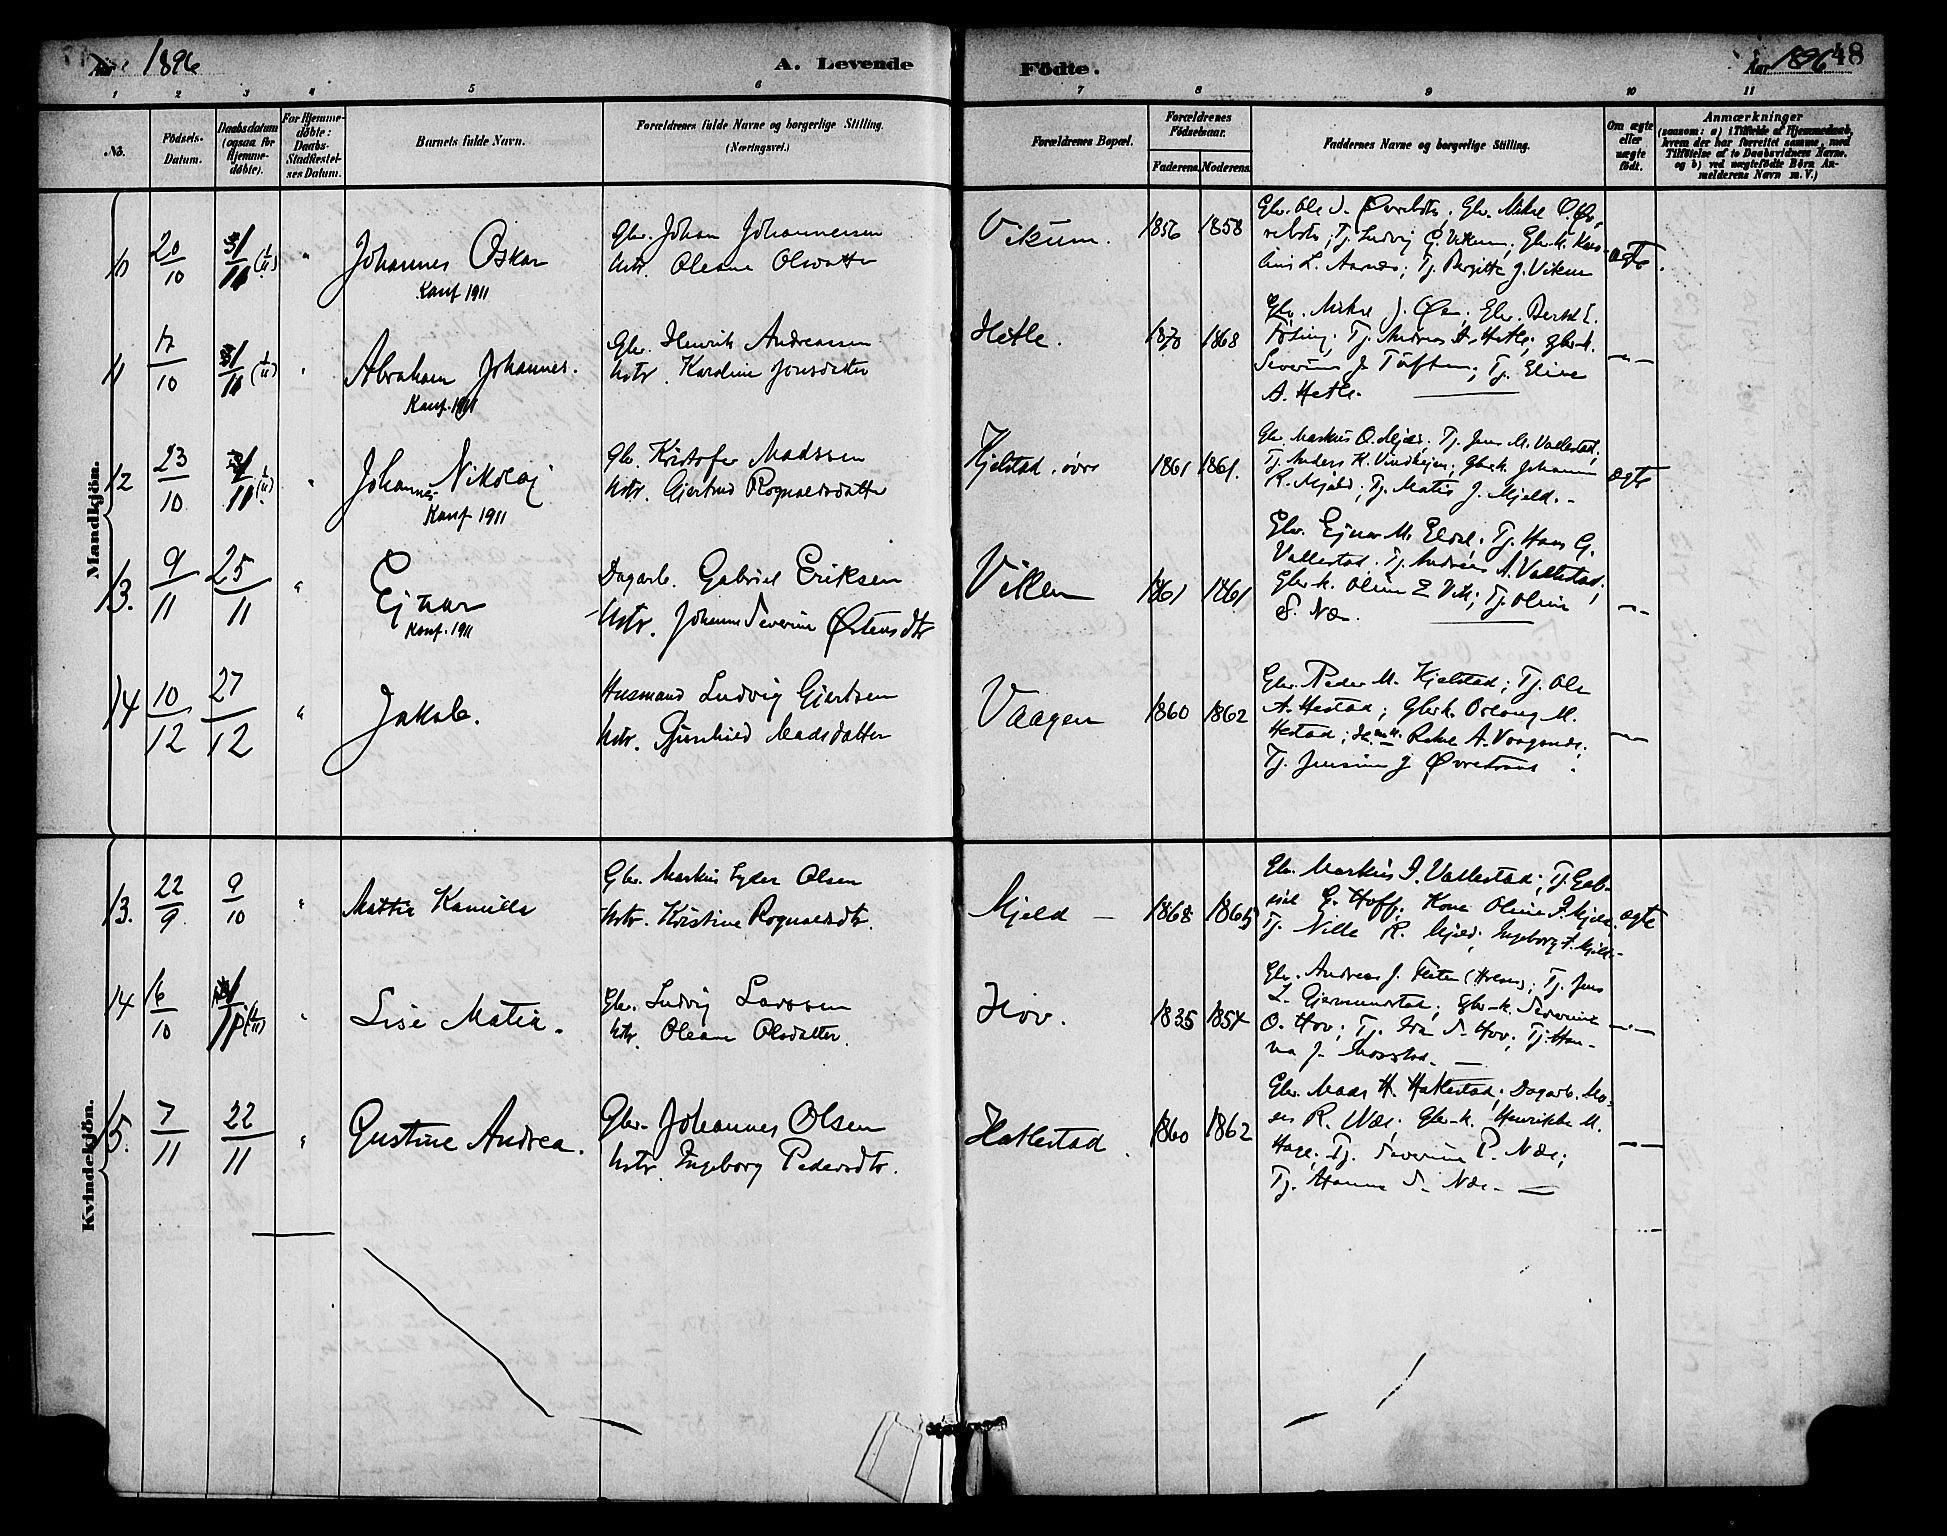 Aar 1896
A. Levende
Födte.
Aar 1896
48
1 2 3 4 5 6 7 8 9 10 11
No.
Födsels-
Datum.
Daabsdatum
(ogsaa for
Hjemme-
döbte).
For Hjemme-
döbte:
Daabs-
Stadfæstel-
ses Datum.
Barnets fulde Navn.
Forældrenes fulde Navne og borgerlige Stilling.
(Næringsvei.)
Forældrenes Bopæl.
Forældrenes
Födselsaar.
Faderens. Moderens.
Faddernes Navne og borgerlige Stilling.
Om ægte
eller
uægte
födt.
Anmærkninger
(saasom: a) i Tilfælde af Hjemmedaab,
hvem der har forrettet samme, med
Tilföielse af to Daabsvidners Navne,
og b) ved uægtefödte Börn An-
melderens Navn m. V.)
Mandkjön.
10 20/10 (1/11) "
Johannes Oskar
Konf 1911
Gbr. Johan Johannessen
Hstr. Oleane Olsdatter
Vikum. 1856 1858
Gbr. Ole J. Øvrebotn, Gbr. Mikal O. Øv-
rebotn; Tj. Ludvig G. Vikum; Gbr.k. Karo-
line L. Aarnæs; Tj. Birgitte J. Vikum
ægte.
11 17/10 (1/11) "
Abraham Johannes.
Konf. 1911
Gbr. Henrik Andreassen
Hstr. Karoline Jonsdatter
Hetle. 1870 1868
Gbr. Mikal J. Øen. Gbr. Bertel E.
Tj. Andrea A. Hetle; Gbr.k.
Severine J. Tuften; Tj. Eline
A. Hetle.
—"—
12 23/10 (1/11) "
Johannes Nikolaj
Konf 1911
Gbr. Kristofer Madssen
Hstr. Gjertrud Rognaldsdatter
Kjelstad, övre 1861 1861.
Gbr. Markus O. Mjeld. Tj. Jens M. Vallestad;
Tj. Anders K. Vindhejen; Gbr.k. Johanne
R. Mjeld; Tj. Matis J. Mjeld.-
ægte
13. 9/11 25/11 "
Ejnar
Konf. 1911
Dagarb. Gabriel Eriksen
Hstr. Johanne Severine Østensdtr
Viken 1861 1861
Gbr. Ejnar M. Eldal. Tj. Hans G.
Vallestad. Tj. Andreas A. Vallestad;
Gbr.k. Oline Z Vik; Tj. Oline
S. Næs.
—"—
14 10/12 27/12 "
Jakob.
Husmand Ludvig Gjertsen
Hstr. Madsdatter
Vaagen 1860 1862
Gbr. Peder M. Kjelstad; Tj. Ole
A. Hestad; Gbr.k. Oslaug M.
Hestad; Hsm.k. Rakel A. Vaagenes;
Tj. Jensine J Øvrestrand.
—"—
Kvindekjön.
13. 22/9 9/10 "
Mathea Kamilla
Gbr. Markus Lyder Olsen
Hstr. Kristine Rognaldsdtr.
Mjeld — 1868 1865
Gbr. Markus I. Vallestad; Tj. Gab-
riel E. Hoff; Kone Oline I. Mjeld.
Tj. Nille R. Mjeld; Ingeborg I. Mjeld.-
ægte
14 16/10 (1/11) "
Lise Matia.
Gbr. Ludvig Larssen
Hstr. Oleane Olsdatter.
Hov. 1835 1854
Gbr. Andreas J. (Holsen); Tj. Jens
L. Gjermundstad; Gbr.k. Severine
O. Hov; Tj. Ida S. Hov; Tj. Han-
na J.
—"—
15. 7/11 22/11 "
Gustine Andrea.
Gbr. Johannes Olsen
Hstr. Ingeborg Pedersdtr.
Hatlestad. 1860 1862
Gbr. Mads H. Hatlestad; Dagarb. Mo-
ses R. Næs; Gbr.k. Henrikke M.
Hage; Tj. Severine P. Næs;
Tj. Hanna S. Næs.-
—"—